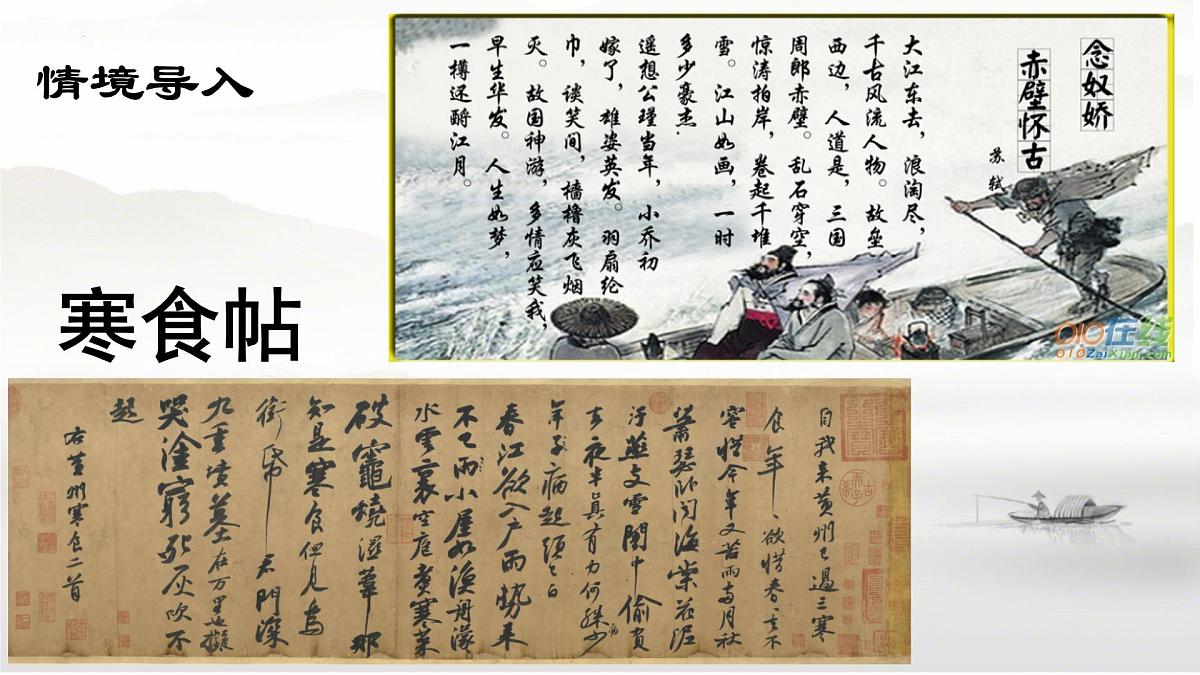 情境导入
念奴娇
赤壁怀古
苏轼
大江东去，浪淘尽，
千古风流人物。故垒
西边，人道是，三国
周郎赤壁。乱石穿空，
惊涛拍岸，卷起千堆
雪。江山如画，一时
多少豪杰.
遥想公瑾当年，小乔初
嫁了，雄姿英发。羽扇纶
巾，谈笑间，樯橹灰飞烟
灭。故国神游，多情应笑我，
早生华发。人生如梦，
一樽还酹江月。
010在线
010ZaiXian.com
寒食帖
自我来黄州已過三寒
食年〻欲惜春〻去不
容惜今年又苦雨兩月秋
蕭瑟卧聞海棠花泥
汙燕支雪闇中偷負
去夜半真有力何殊少
年子病起頭已白
春江欲入户雨勢来
不已雨小屋如漁舟濛〻
水雲裏空庖煮寒菜
破竈燒濕葦那
知是寒食但見烏
銜帋君門深
九重墳墓在万里也擬
哭塗窮死灰吹不
起
右黄州寒食二首